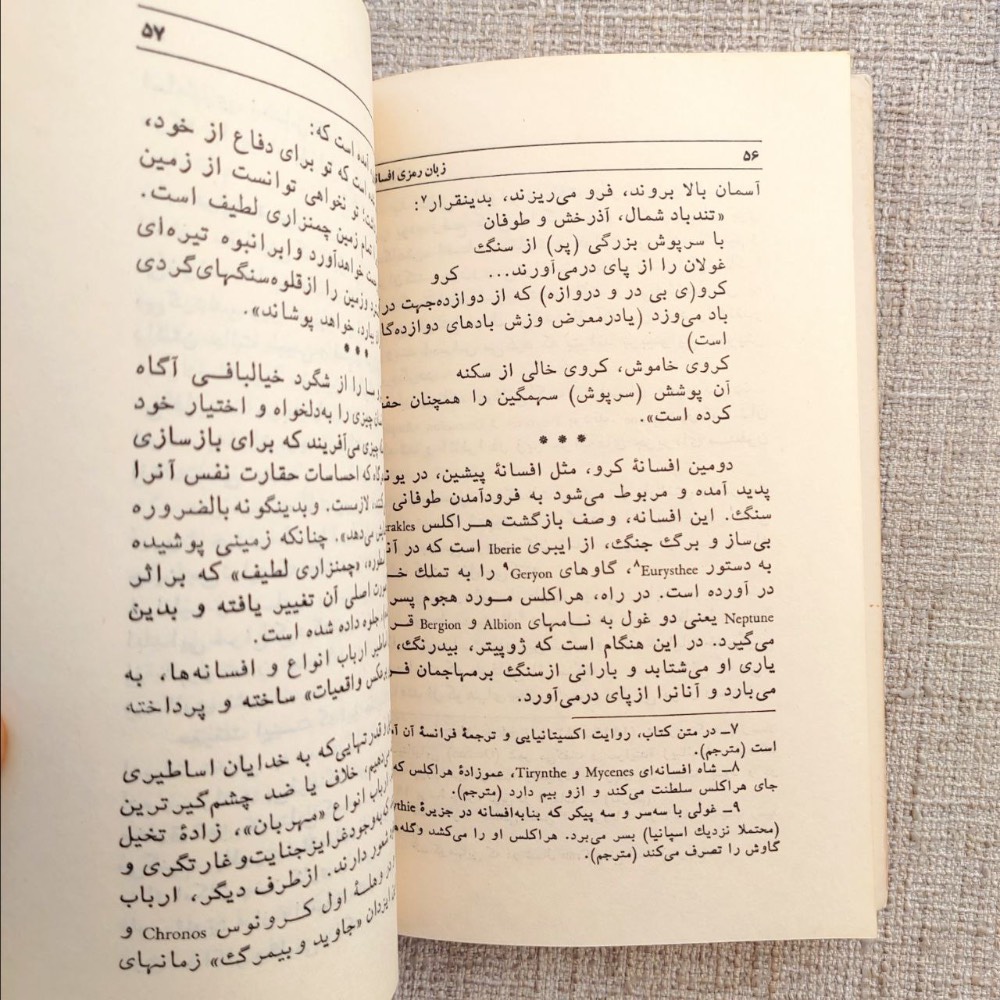 ۵۶
زبان رمزی
آسمان بالا بروند، فرو می‌ریزند، بدینقرار۷:
«تندباد شمال، آذرخش و طوفان
با سرپوش بزرگی (پر) از سنگ
غولان را از پای درمی‌آورند... کرو
کرو(ی بی در و دروازه) که از دوازده‌جهت در
باد می‌وزد (یادرمعرض وزش بادهای
است)
کروی خاموش، کروی خالی از سکنه
آن پوشش (سرپوش) سهمگین را همچنان
کرده است».
***
دومین افسانهٔ کرو، مثل افسانهٔ پیشین، در
پدید آمده و مربوط می‌شود به فرودآمدن طوفانی
سنگ. این افسانه، وصف بازگشت هراکلس
بی‌ساز و برگ جنگ، از ایبری Iberie است که در
به دستور Eurysthee۸، گاوهای Geryon۹ را به تملک
در آورده است. در راه، هراکلس مورد هجوم
Neptune یعنی دو غول به نامهای Albion و Bergion
می‌گیرد. در این هنگام است که ژوپیتر، بیدرنگ،
یاری او می‌شتابد و بارانی ازسنگ برمهاجمان
می‌بارد و آنانرا ازپای درمی‌آورد.
۷ـ در متن کتاب، روایت اکسیتانیایی و ترجمهٔ فرانسهٔ آن
است (مترجم).
۸ـ شاه افسانه‌ای Mycenes و Tirynthe، عموزادهٔ هراکلس که
جای هراکلس سلطنت می‌کند و ازو بیم دارد (مترجم).
۹ـ غولی با سه‌سر و سه پیکر که بنابه‌افسانه در جزیرهٔ
(محتملا نزدیک اسپانیا) بسر می‌برد. هراکلس او را می‌کشد
گاوش را تصرف می‌کند (مترجم).
۵۷
آمده است که:
است که تو برای دفاع از خود،
تو نخواهی توانست از زمین
زمین چمنزاری لطیف است.
خواهدآورد وابرانبوه تیره‌ای
وزمین را ازقلوه‌سنگهای‌گردی
خواهد پوشاند».
***
را از شگرد خیالبافی آگاه
چیزی را به‌دلخواه و اختیار خود
چیزی می‌آفریند که برای بازسازی
که احساسات حقارت نفس آنرا
لازمست. وبدینگونه بالضروره
می‌دهد». چنانکه زمینی پوشیده
«چمنزاری لطیف» که براثر
اصلی آن تغییر یافته و بدین
جلوه داده شده است.
ارباب انواع و افسانه‌ها، به
واقعیات» ساخته و پرداخته
قدرتهایی‌که به خدایان اساطیری
خلاف یا ضد چشم‌گیر ترین
انواع «مهربان»، زادهٔ تخیل
غرایزجنایت‌وغارتگری و
دارند. ازطرف دیگر، ارباب
وهلهٔ اول کرونوس Chronos و
ایزدان «جاوید و بیمرگ» زمانهای